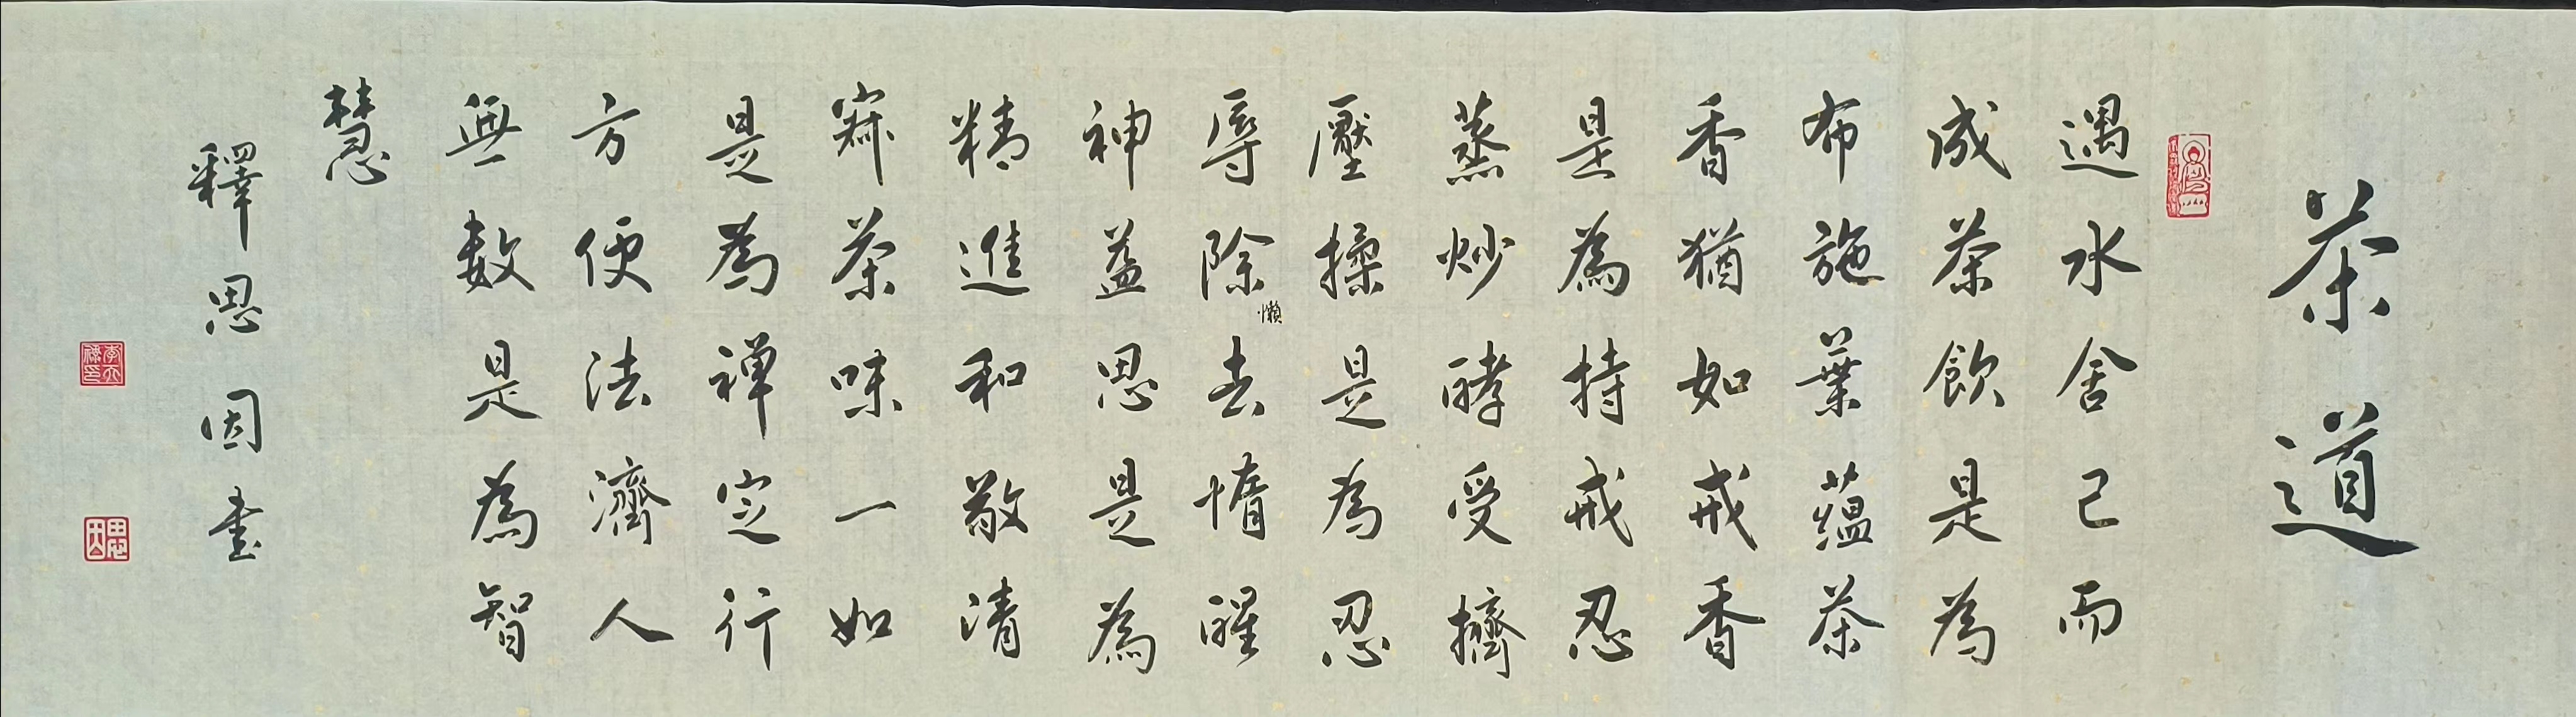 茶道
遇水舍己而
成茶飲是為
布施葉蘊茶
香猶如戒香
是為持戒忍
蒸炒酵受擠
壓揉是為忍
辱除懶去惰醒
神益思是為
精進和敬清
寂茶味一如
是為禪定行
方便法濟人
無數是為智
慧
釋思因書